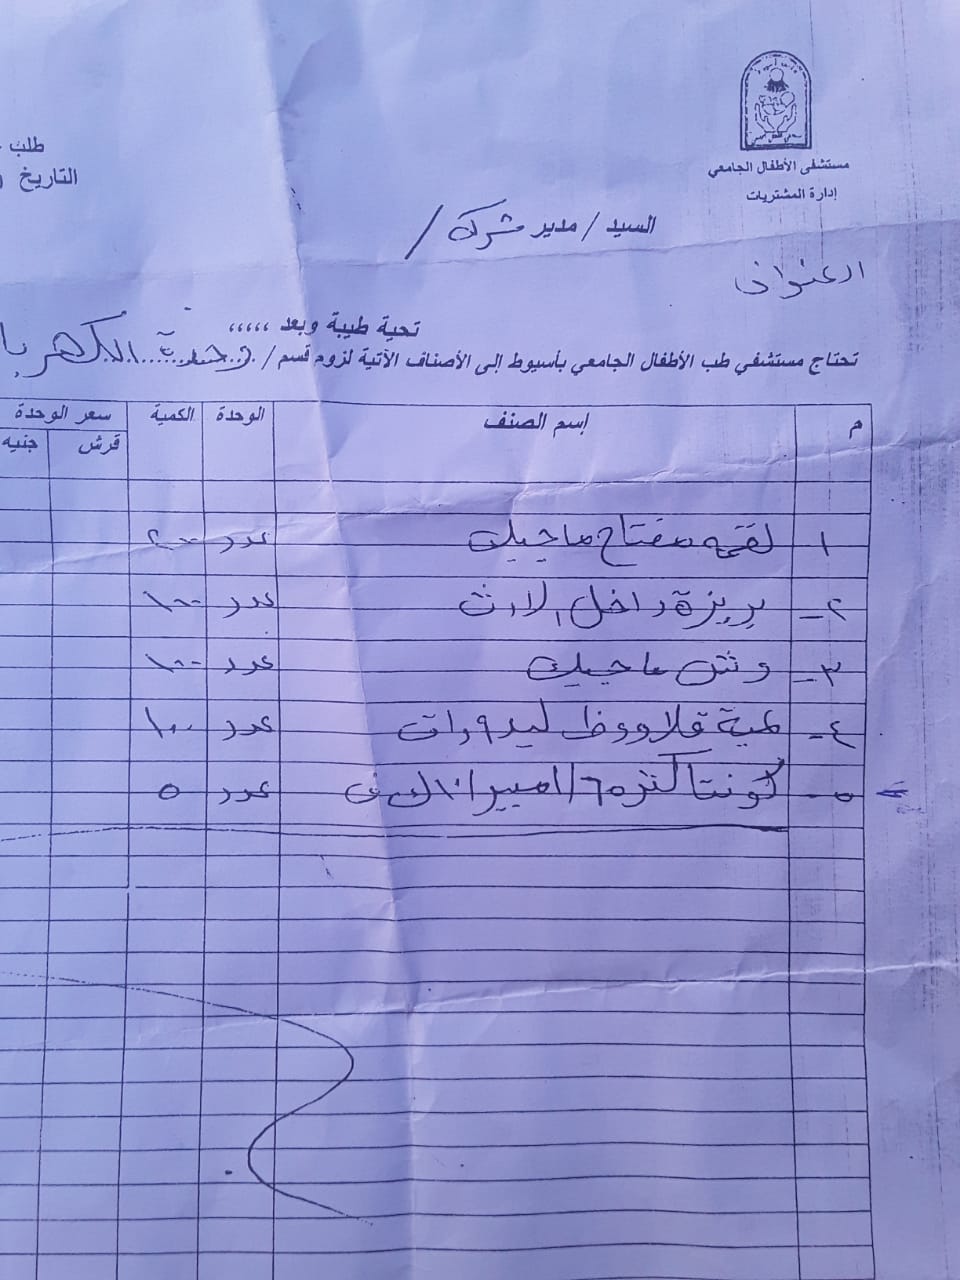 طلب
التاريخ
مستشفى الأطفال الجامعي
إدارة المشتريات
السيد / مدير شركة /
العنوان
تحية طيبة وبعد ،،،،،
تحتاج مستشفي طب الأطفال الجامعي بأسيوط إلى الأصناف الآتية لزوم قسم / وحدة الكهربا
م إسم الصنف الوحدة الكمية سعر الوحدة
قرش جنيه
١ لقمه مفتاح ماجيك عدد ٢٠٠
٢- بريزة داخل عدد ١٠٠
٣- وش ماجيك عدد ١٠٠
٤- لمبة قلاووظ ليد ٩ وات عدد ١٠٠
٥- كونتاكتر ٦٥ امبير عدد ٥